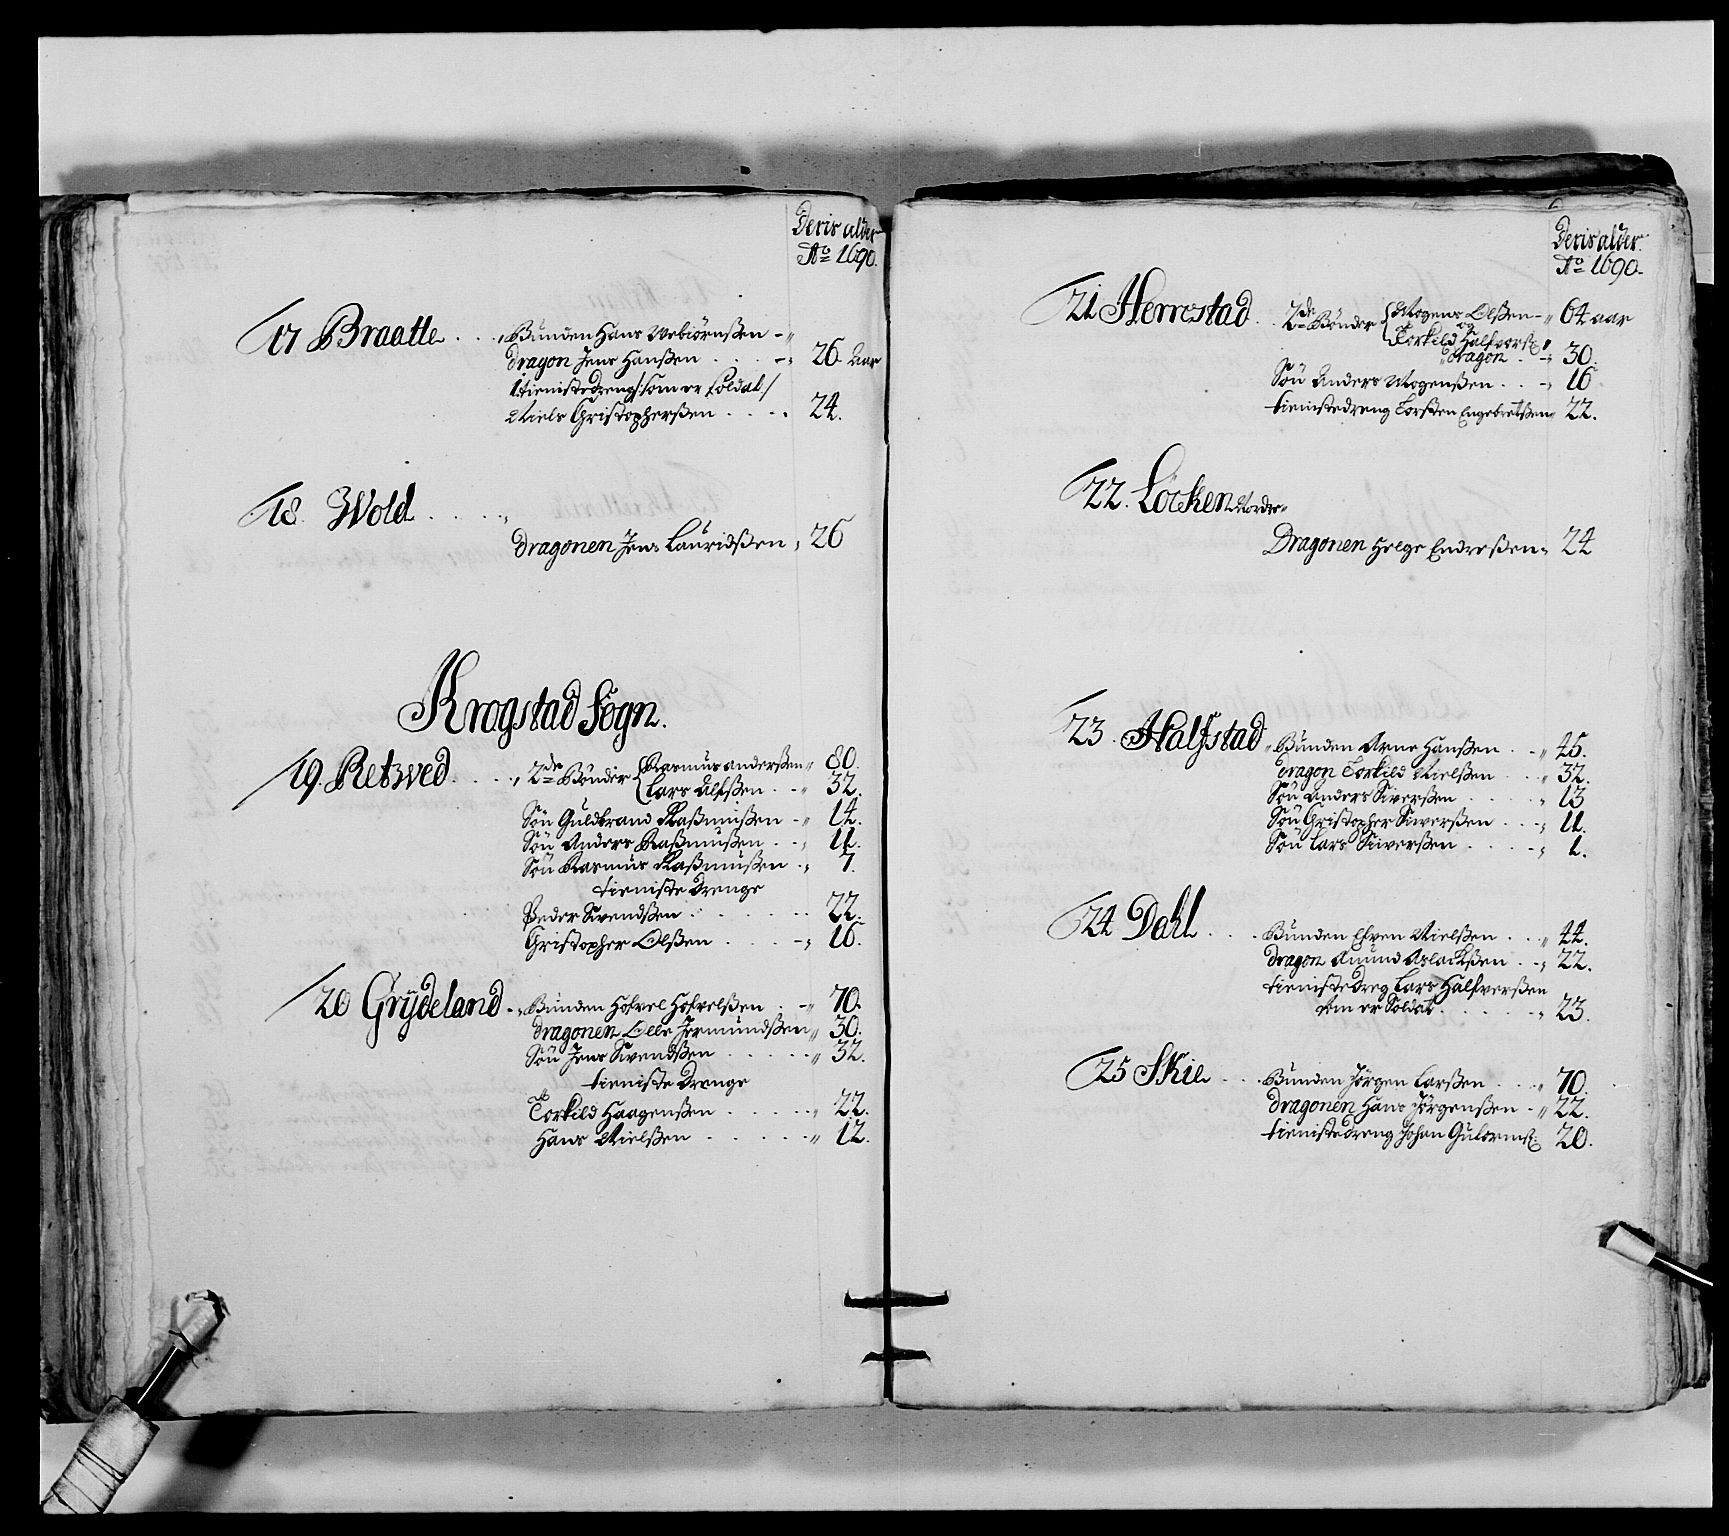 Deris alder
Ao 1690.
17 Braatte . . . Bunden Hans Webiörnßen -
dragon Jens Hanßen . . . . 26 Aar
1 tienistedreng /: som er soldat /
Niels Christopherßen . . . . 24.
18. Wold . . . .
dragonen Jens Lauridßen, 26
Krogstad Sogn.
19. Retwed . . . . 2de Bönder { Rasmus anderßen 80.
Lars Ulfßen . . 32.
Sön Guldbrand Raßmußen - 14.
Sön Anders Raßmußen . . 11.
Sön Rasmus Raßmußen . 7.
tieniste Drenge
Peder Swendßen . . . . . . 22.
Christopher Olßen . . . . 16.
20 Grydeland . . Bunden Hofvel Hofvelßen - 70.
dragonen Olle Jermundßen 30.
Sön Jens Swendßen . . . . . 32.
tieniste Drenge
Torkild Haagenßen . . . . . 22.
Hans Nielßen . . . . . 12.
Deris alder
Ao 1690.
21 Herrestad . 2de Bönder { Mogens Olßen - 64 aar
og
Torkild Halfvorß:
dragon . . 30.
Sön Anders Mogenßen . . . 16
tienistedreng Torsten Engebretßen 22.
22. Löcken Nordre
Dragonen Helge Endreßen 24
23. Halfstad Bunden Arne Hanßen . . 45.
dragon Torkild Nielßen . . . 32.
Sön Anders Siverßen . . . . . 13
Sön Christopher Siverßen . . . 11.
Sön Lars Siiverßen . . . . . 1.
24 Dahl . . . . Bunden Elven Nielßen . . . 44.
dragon Amund Aslackßen . . 22.
tienistedreg Lars Halfverßen
som er Soldat . . . . . . 23.
25 Skie . . . . Bunden Jörgen Larßen . . . . 70.
dragonen Hans Jörgenßen . 22.
tienistedreng Johan Gulormß: 20.